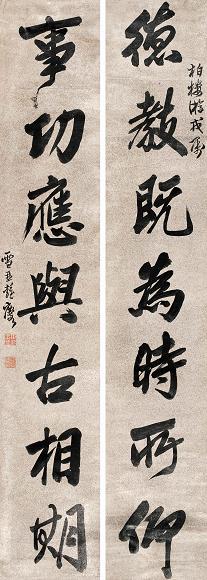 德教既為時所仰
柏樓游戎屬
事功應與古相期